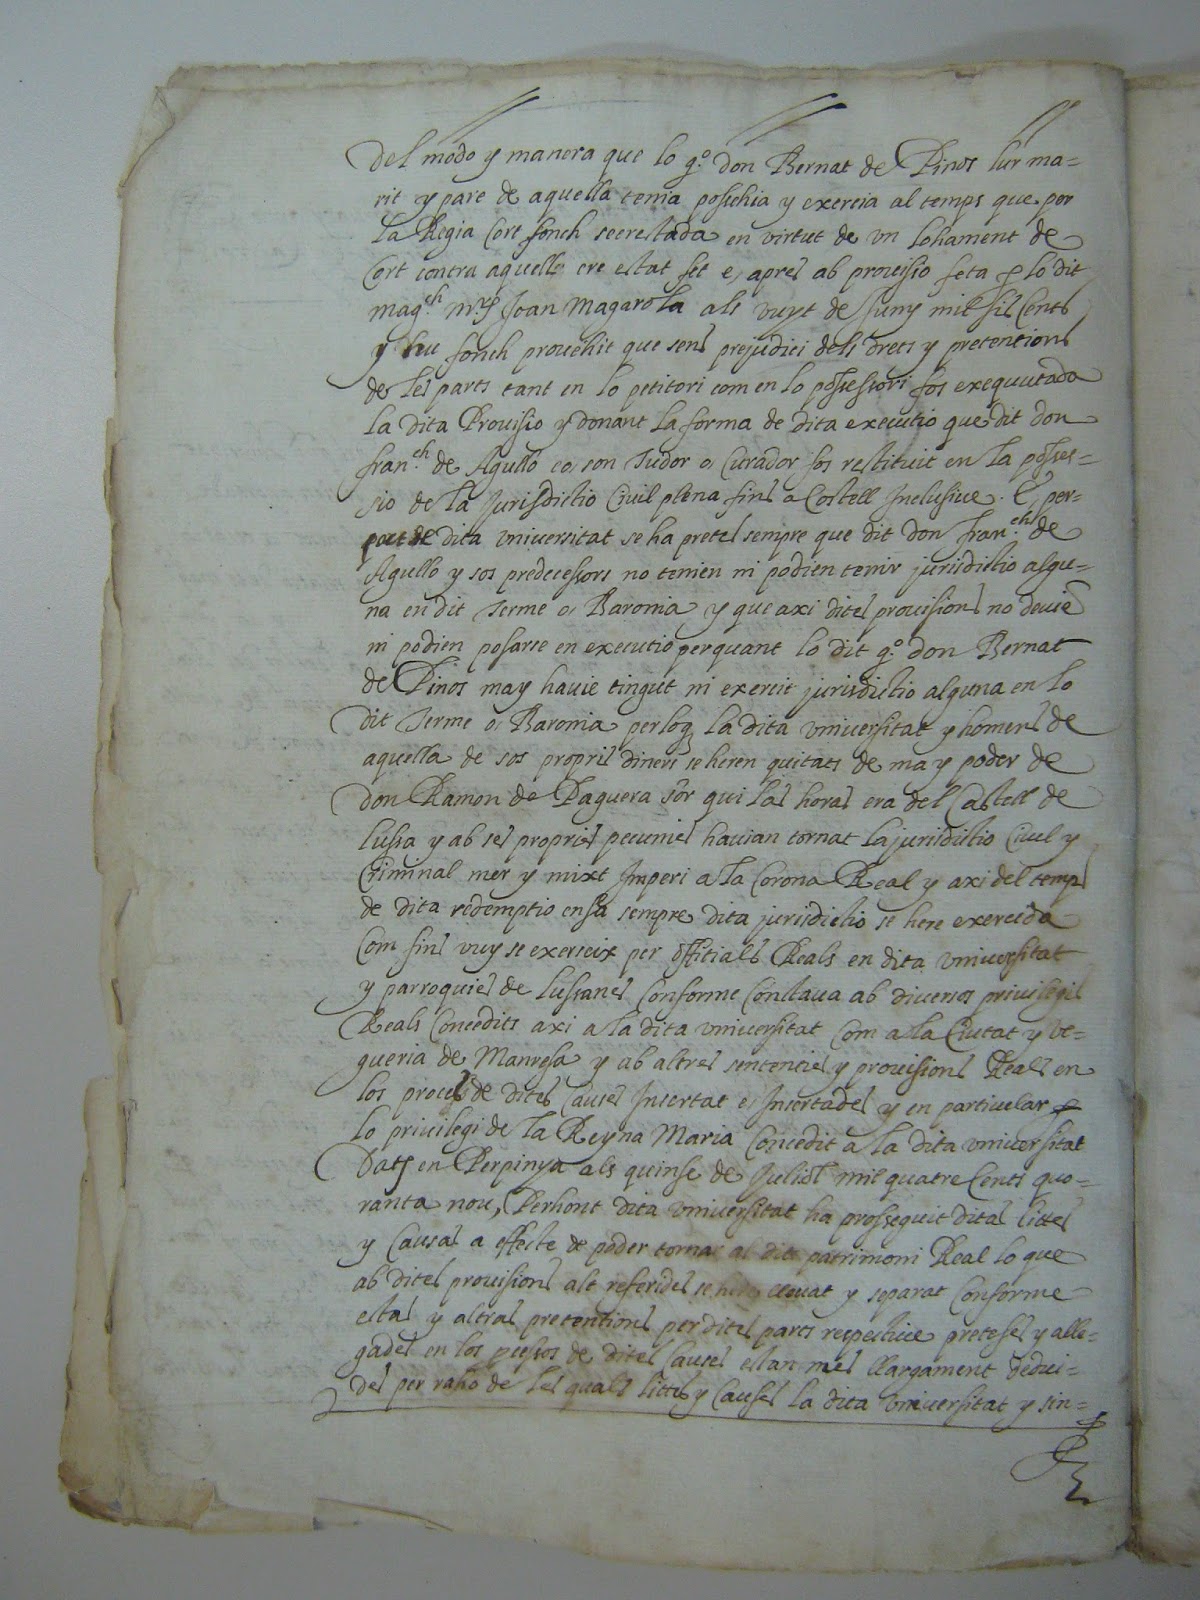 del modo y manera que lo q.º don Bernat de Pinos lur ma-
rit y pare de aquella tenia possehia y exercia al temps que per
la Regia Cort fonch secrestada en virtut de vn lohament de
Cort contra aquells ere estat fet e, apres ab prouisio feta p lo dit
mag.ch m.r Joan Magarola als vuyt de Juny mil sis Cents
y fonch prouehit que sens prejudici dels drets y pretentions
de les parts tant en lo petitori com en lo possessori fos exequutada
la dita Prouisio y donant la forma de dita executio que dit don
fran.ch de Agullo o, son Tudor o, Curador fos restituit en la posses-
sio de la Jurisdictio Ciuil plena fins a Costell Inclusiue. E per-
part de dita vniuersitat se ha pretes sempre que dit don fran.ch de
Agullo y sos predecessors no tenien ni podien tenir jurisdictio algu-
na en dit Terme o, Baronia y que axi dites prouisions no deuiē
ni podien posarse en executio perquant lo dit q.º don Bernat
de Pinos may hauie tingut ni exercit jurisdictio alguna en lo
dit Terme o, Baronia perloq la dita vniuersitat y homens de
aquella de sos propris diners se heren quitats de ma y poder de
don Ramon de Paguera sor qui las horas era del Castell de
lussa y ab ses propries pecunies hauian tornat la jurisdictio Ciuil y
Criminal mer y mixt Imperi a la Corona Real y axi del temps
de dita redemptio ensa sempre dita jurisdictio se here exercida
Com fins vuy se exerseix per offitials Reals en dita vniuersitat
y parroquies de lussanes Conforme Constaua ab diuersos priuilegis
Reals Concedits axi a la dita vniuersitat Com a la Ciutat y ve-
gueria de Manresa y ab altres sententies y prouisions Reals en
los proces de dites Causes Insertat e, Insertades y en particular p
lo priuilegi de la Reyna Maria Concedit a la dita vniuersitat
Dat en Perpinya als quinse de Juliol mil quatre Cents quo-
ranta nou, Perhont dita vniuersitat ha prosseguit ditas littes
y Causas a effecte de poder tornar al dit patrimoni Real lo que
ab dites prouisions alt referides se here lleuat y separat Conforme
estas y altras pretentions per dites parts respectiue preteses y alle-
gades en los pcessos de dites Causes estan mes llargament dedui-
des per raho de les quals littes y Causes la dita vniuersitat y sin-